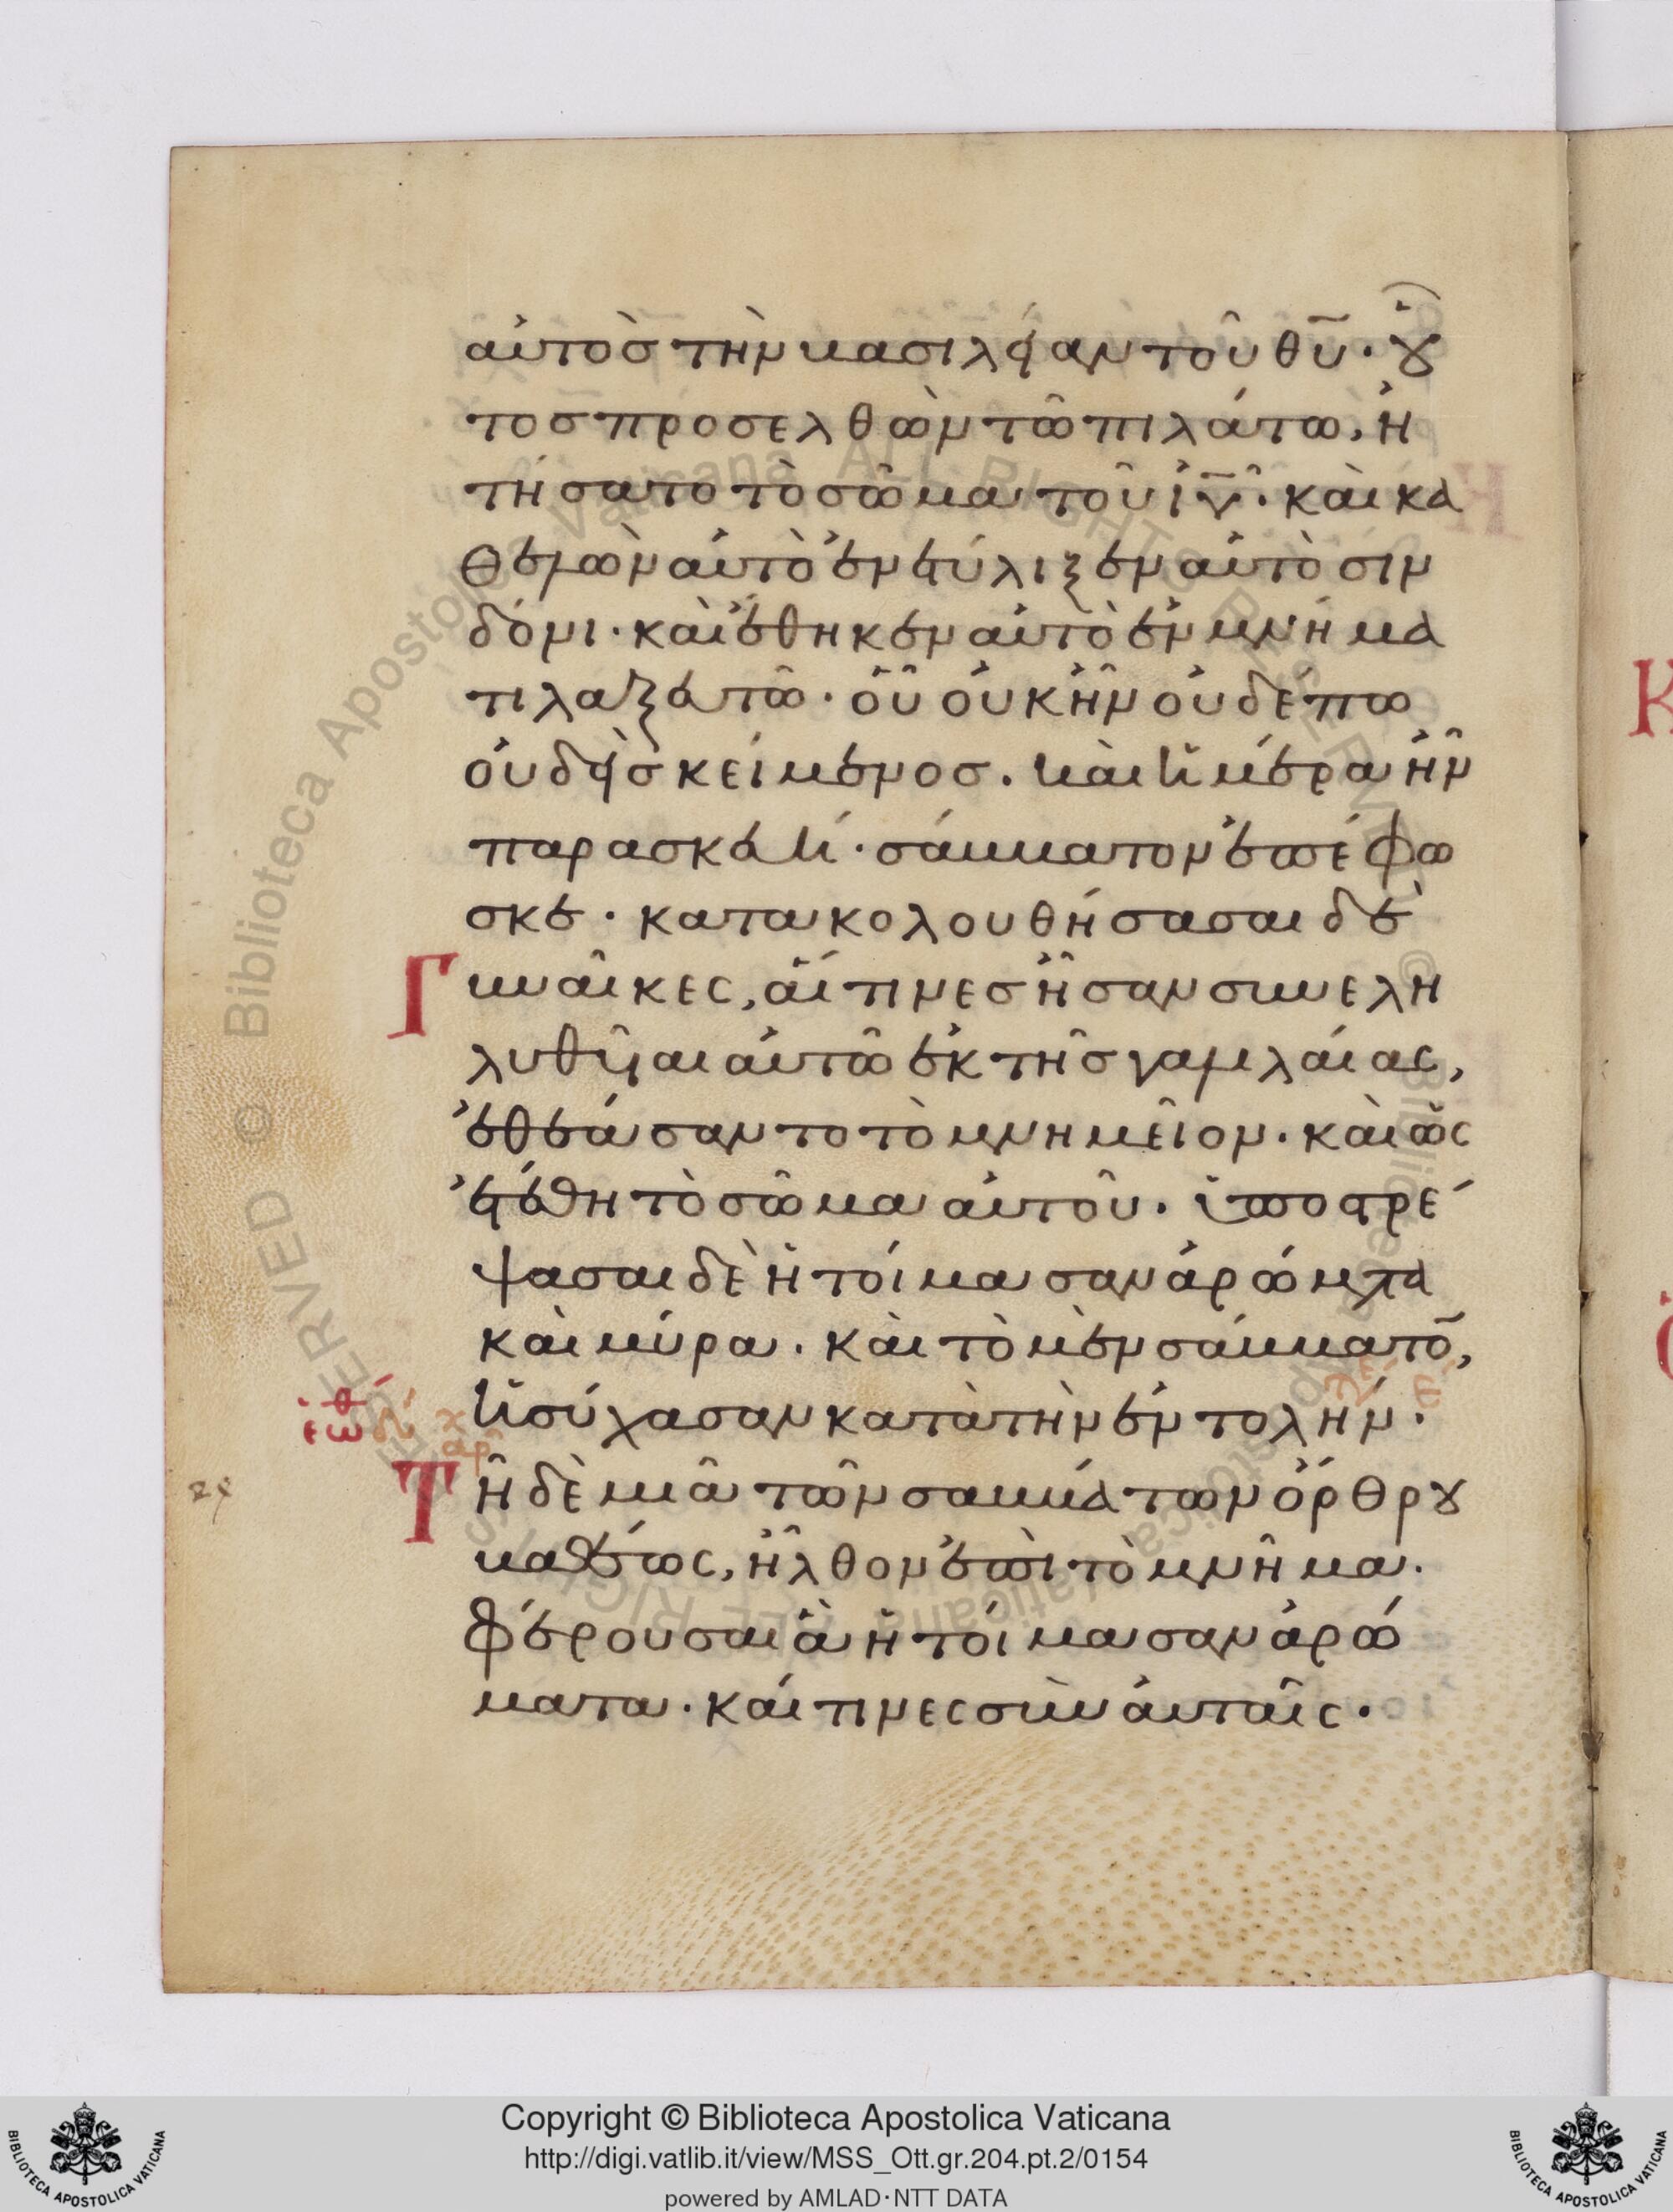 αὐτὸσ τὴν βασιλείαν τοῦ θυ̅· οὗ
τοσ προσελθὼν τῶ πιλάτω, ἠ
τήσατο τὸ σῶμα τοῦ ἰυ̅· καὶ κα
θελὼν αὐτὸ ἐνετύλιξεν αὐτὸ σιν
δόνι· καὶ ἔθηκεν αὐτὸ ἐν μνήμα
τι λαξευτῶ· οὗ οὐκ ἦν οὐδέπω
οὐδεὶσ κείμενοσ. καὶ ἡμέρα ἦν
παρασκευή· σάββατον ἐπέφω
σκε· κατακολουθήσασαι δὲ
Γ
υναῖκες, αἵτινεσ ἦσαν συνελη
λυθῆαι αὐτῶ ἐκ τῆσ γαλιλαίας,
ἐθεάσαντο τὸ μνημεῖον. καὶ ὡς
ἐτέθη τὸ σῶμα αὐτοῦ. ὑποστρέ
ψασαι δὲ ἡτοίμασαν ἀρώματα
καὶ μύρα. καὶ τὸ μὲν σάββατο̅,
ἡσύχασαν κατὰ τὴν ἐντολήν.
Τ
ῆ δὲ μιᾶ τῶν σαββάτων ὄρθρου
βαθέως, ἦλθον ἐπὶ τὸ μνῆμα.
φέρουσαι ἃ ἡτοίμασαν ἀρώ
ματα. καί τινες σὺν αὐταῖς.
Copyright © Biblioteca Apostolica Vaticana
http://digi.vatlib.it/view/MSS_Ott.gr.204.pt.2/0154
powered by AMLAD·NTT DATA
BIBLIOTECA APOSTOLICA VATICANA
BIBLIOTECA APOSTOLICA VATICANA